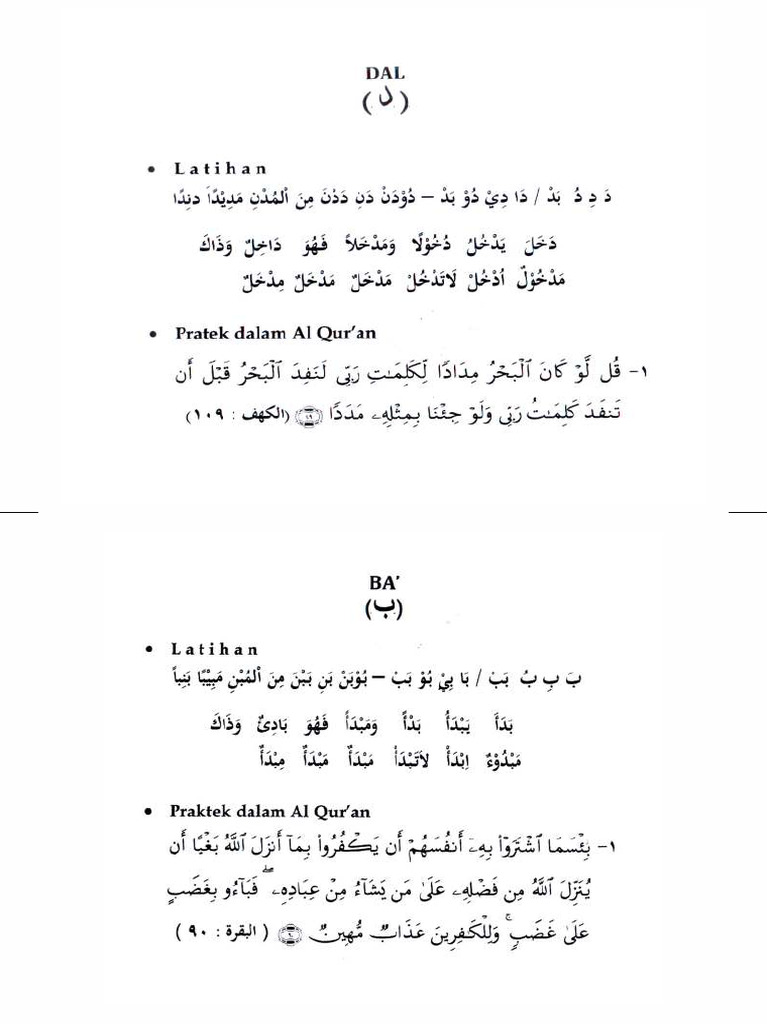 DAL
(ل)
• Latihan
دَ دِ دُ بَدْ / دَا دِيْ دُوْ بَدْ – دُوْدَنْ دَنِ دَدْنَ مِنَ الْمُدْنِ مَدِيْدًا دنِدًا
دَخَلَ يَدْخُلُ دُخُوْلًا وَمَدْخَلاً فَهُوَ دَاخِلٌ وَذَاكَ
مَدْخُوْلٌ اُدْخُلْ لَاتَدْخُلْ مَدْخَلٌ مَدْخَلٌ مِدْخَلٌ
• Pratek dalam Al Qur'an
١- قُل لَّوْ كَانَ ٱلْبَحْرُ مِدَادًا لِّكَلِمَٰتِ رَبِّى لَنَفِدَ ٱلْبَحْرُ قَبْلَ أَن
تَنفَدَ كَلِمَٰتُ رَبِّى وَلَوْ جِئْنَا بِمِثْلِهِۦ مَدَدًا (الكهف : ١٠٩)
BA'
(ب)
• Latihan
بَ بِ بُ بَبْ / بَا بِيْ بُوْ بَبْ – بُوْبَنْ بَنِ بَبْنَ مِنَ الْمُبْنِ مَبِيْبًا بَنِباً
بَدَأَ يَبْدَأُ بَدْأً وَمَبْدَأً فَهُوَ بَادِئٌ وَذَاكَ
مَبْدُوْءٌ اِبْدَأْ لاَتَبْدَأْ مَبْدَأٌ مَبْدَأٌ مِبْدَأٌ
• Praktek dalam Al Qur'an
١- بِئْسَمَا ٱشْتَرَوْا۟ بِهِۦٓ أَنفُسَهُمْ أَن يَكْفُرُوا۟ بِمَآ أَنزَلَ ٱللَّهُ بَغْيًا أَن
يُنَزِّلَ ٱللَّهُ مِن فَضْلِهِۦ عَلَىٰ مَن يَشَآءُ مِنْ عِبَادِهِۦ ۖ فَبَآءُو بِغَضَبٍ
عَلَىٰ غَضَبٍ ۚ وَلِلْكَٰفِرِينَ عَذَابٌ مُّهِينٌ (البقرة : ٩٠)